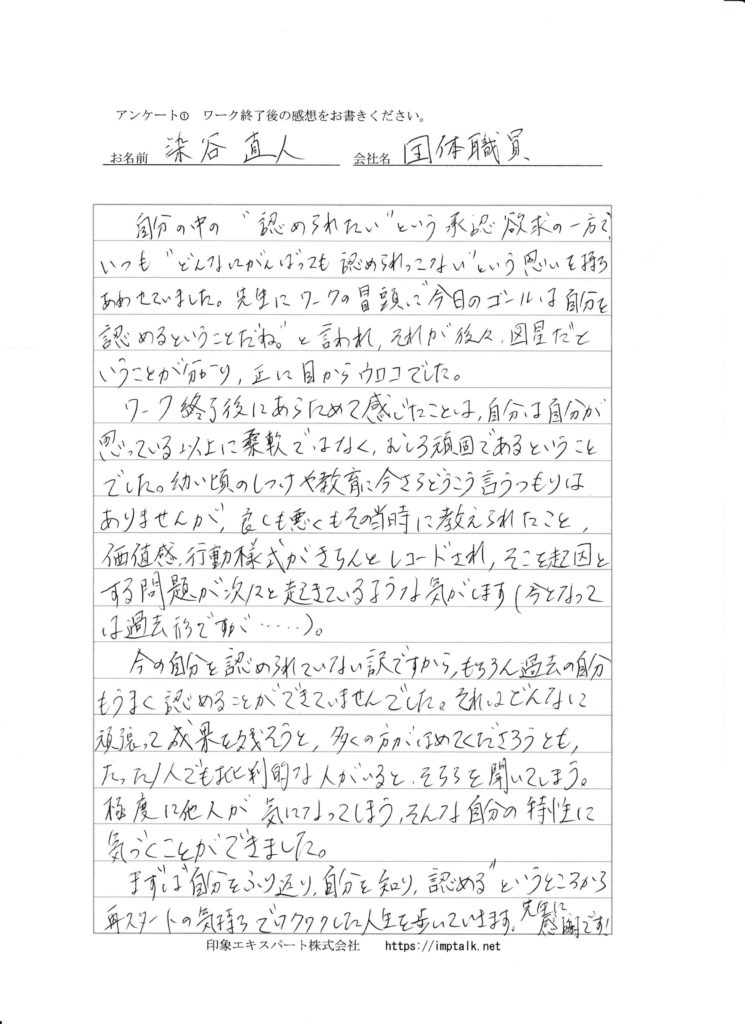 アンケート① ワーク終了後の感想をお書きください。
お名前 染谷 直人 会社名 団体職員
自分の中の“認められたい”という承認欲求の一方で、
いつも“どんなにがんばっても認められっこない”という思いを持ち
あわせていました。先生にワークの冒頭に“今日のゴールは自分を
認めるということだね。”と言われ、それが後々、図星だと
いうことが分かり、正に目からウロコでした。
ワーク終了後にあらためて感じたことは、自分は自分が
思っている以上に柔軟ではなく、むしろ頑固であるということ
でした。幼い頃のしつけや教育に今さらどうこう言うつもりは
ありませんが、良くも悪くもその当時に教えられたこと、
価値感、行動様式がきちんとレコードされ、そこを起因と
する問題が次々と起きているような気がします(今となって
は過去形ですが……)。
今の自分を認められていない訳ですから、もちろん過去の自分
もうまく認めることができていませんでした。それはどんなに
頑張って成果を残そうと、多くの方がほめてくださろうとも、
たった1人でも批判的な人がいると、そちらを聞いてしまう。
極度に他人が気になってしまう、そんな自分の特性に
気づくことができました。
まずは“自分をふり返り、自分を知り、認める”というところから
再スタートの気持ちでワクワクした人生を歩いていきます。先生に
感謝です!
印象エキスパート株式会社 https://imptalk.net